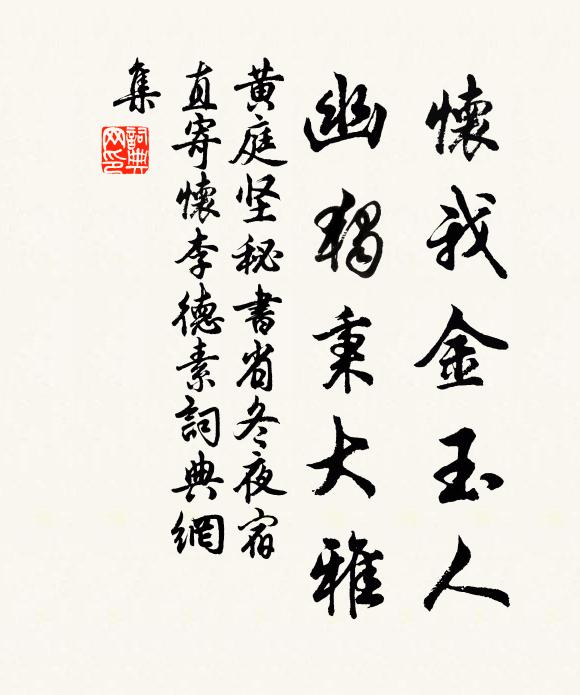 懷我金玉人
幽獨秉大雅
黄庭坚秘書省冬夜宿
直寄懷李德素詞典網
集
詞典網印